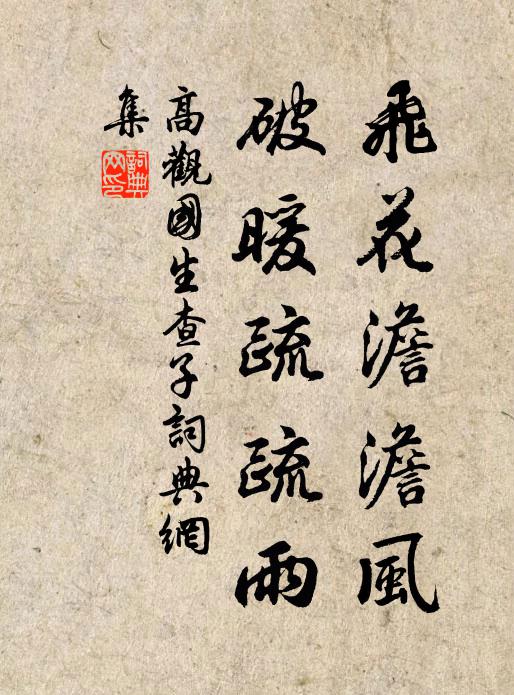 飛花澹澹風
破暖疏疏雨
高觀國生查子詞典網
集
詞典網印